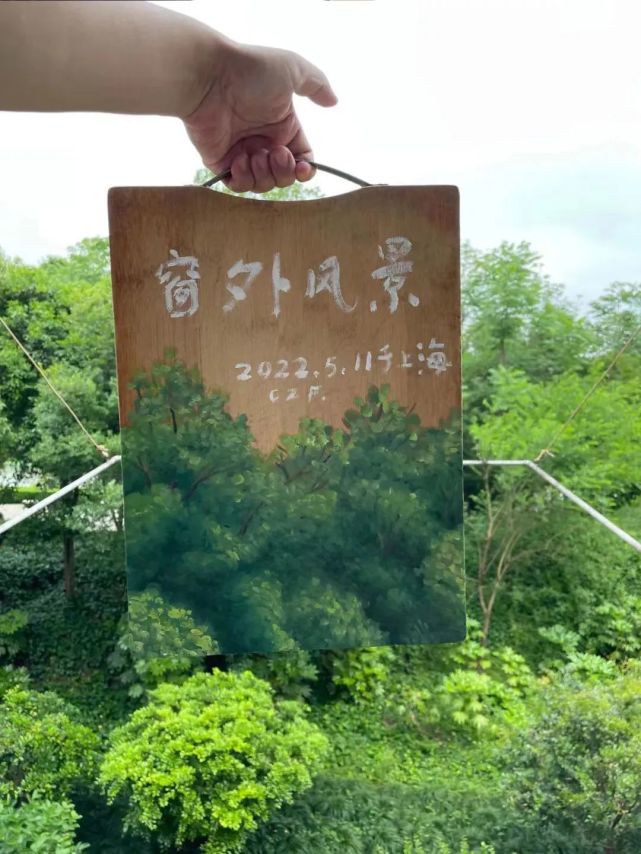 窗外风景
2022.5.11于上海
CZF.